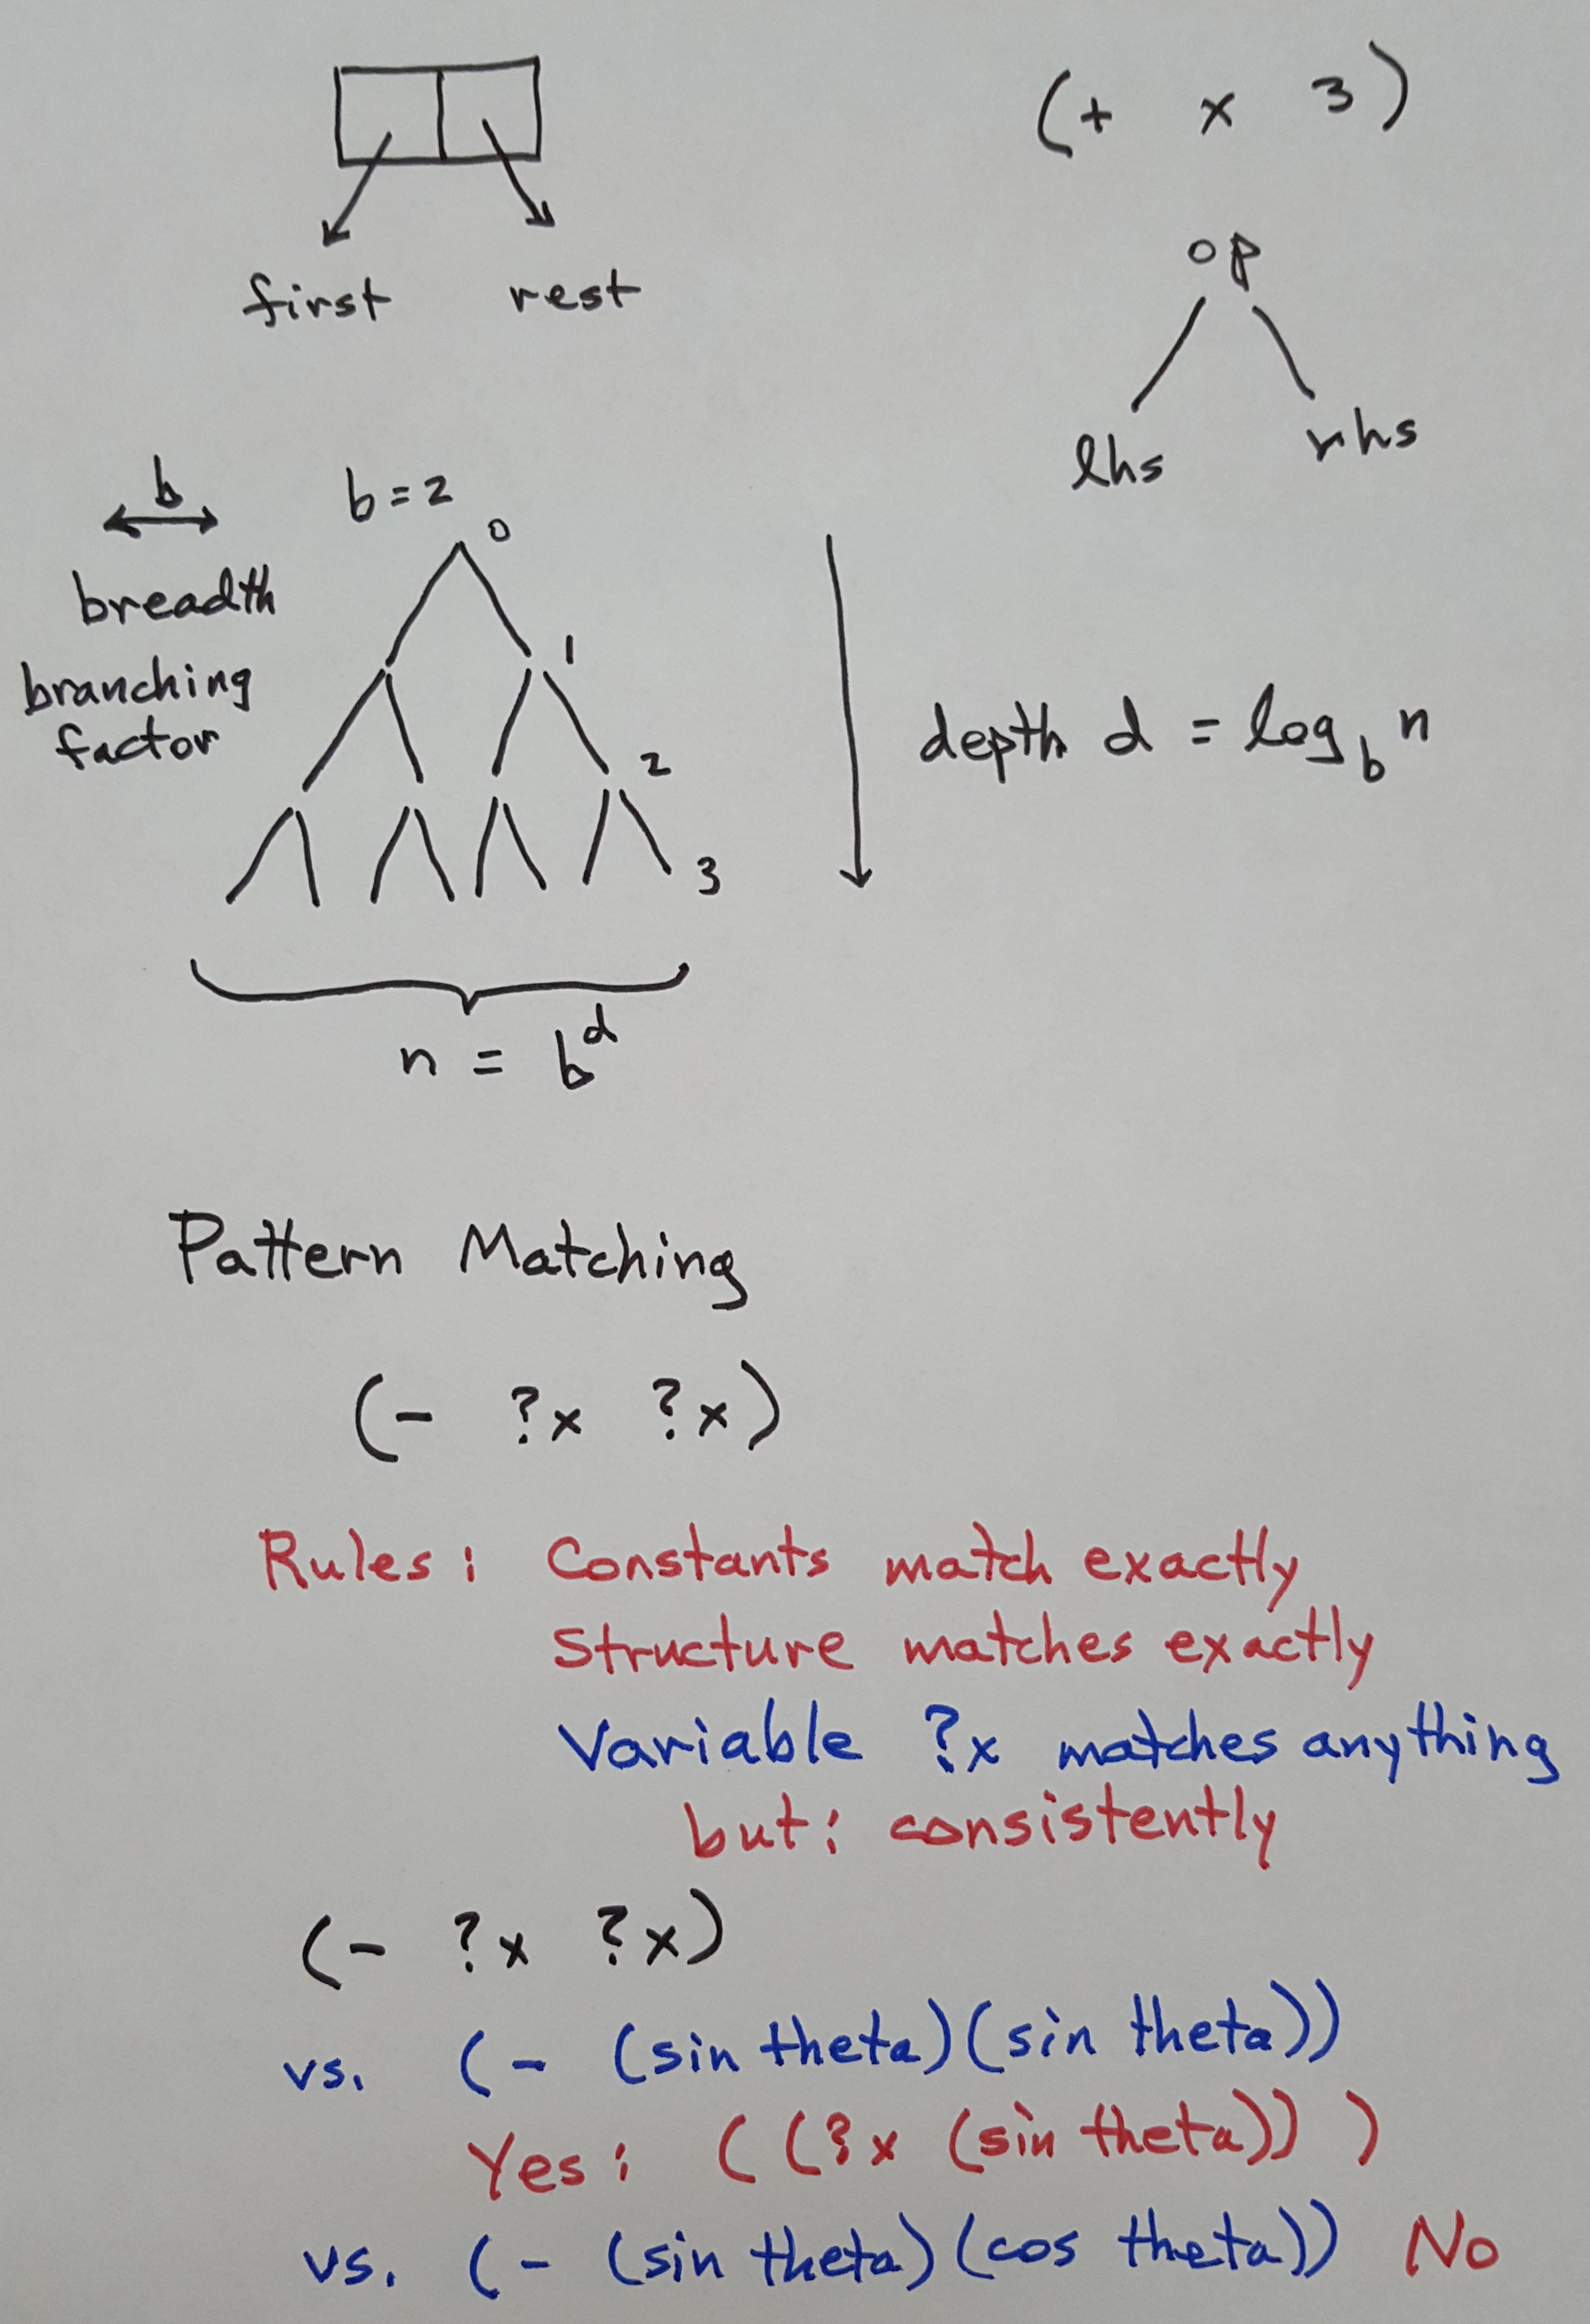 (+ x 3)
first rest
op
lhs rhs
b
b = 2
0
breadth
branching
factor
1
2
3
depth d = log_b n
n = b^d
Pattern Matching
(- ?x ?x)
Rules: Constants match exactly
Structure matches exactly
Variable ?x matches anything
but: consistently
(- ?x ?x)
vs. (- (sin theta)(sin theta))
Yes: ((?x (sin theta)))
vs. (- (sin theta)(cos theta)) No